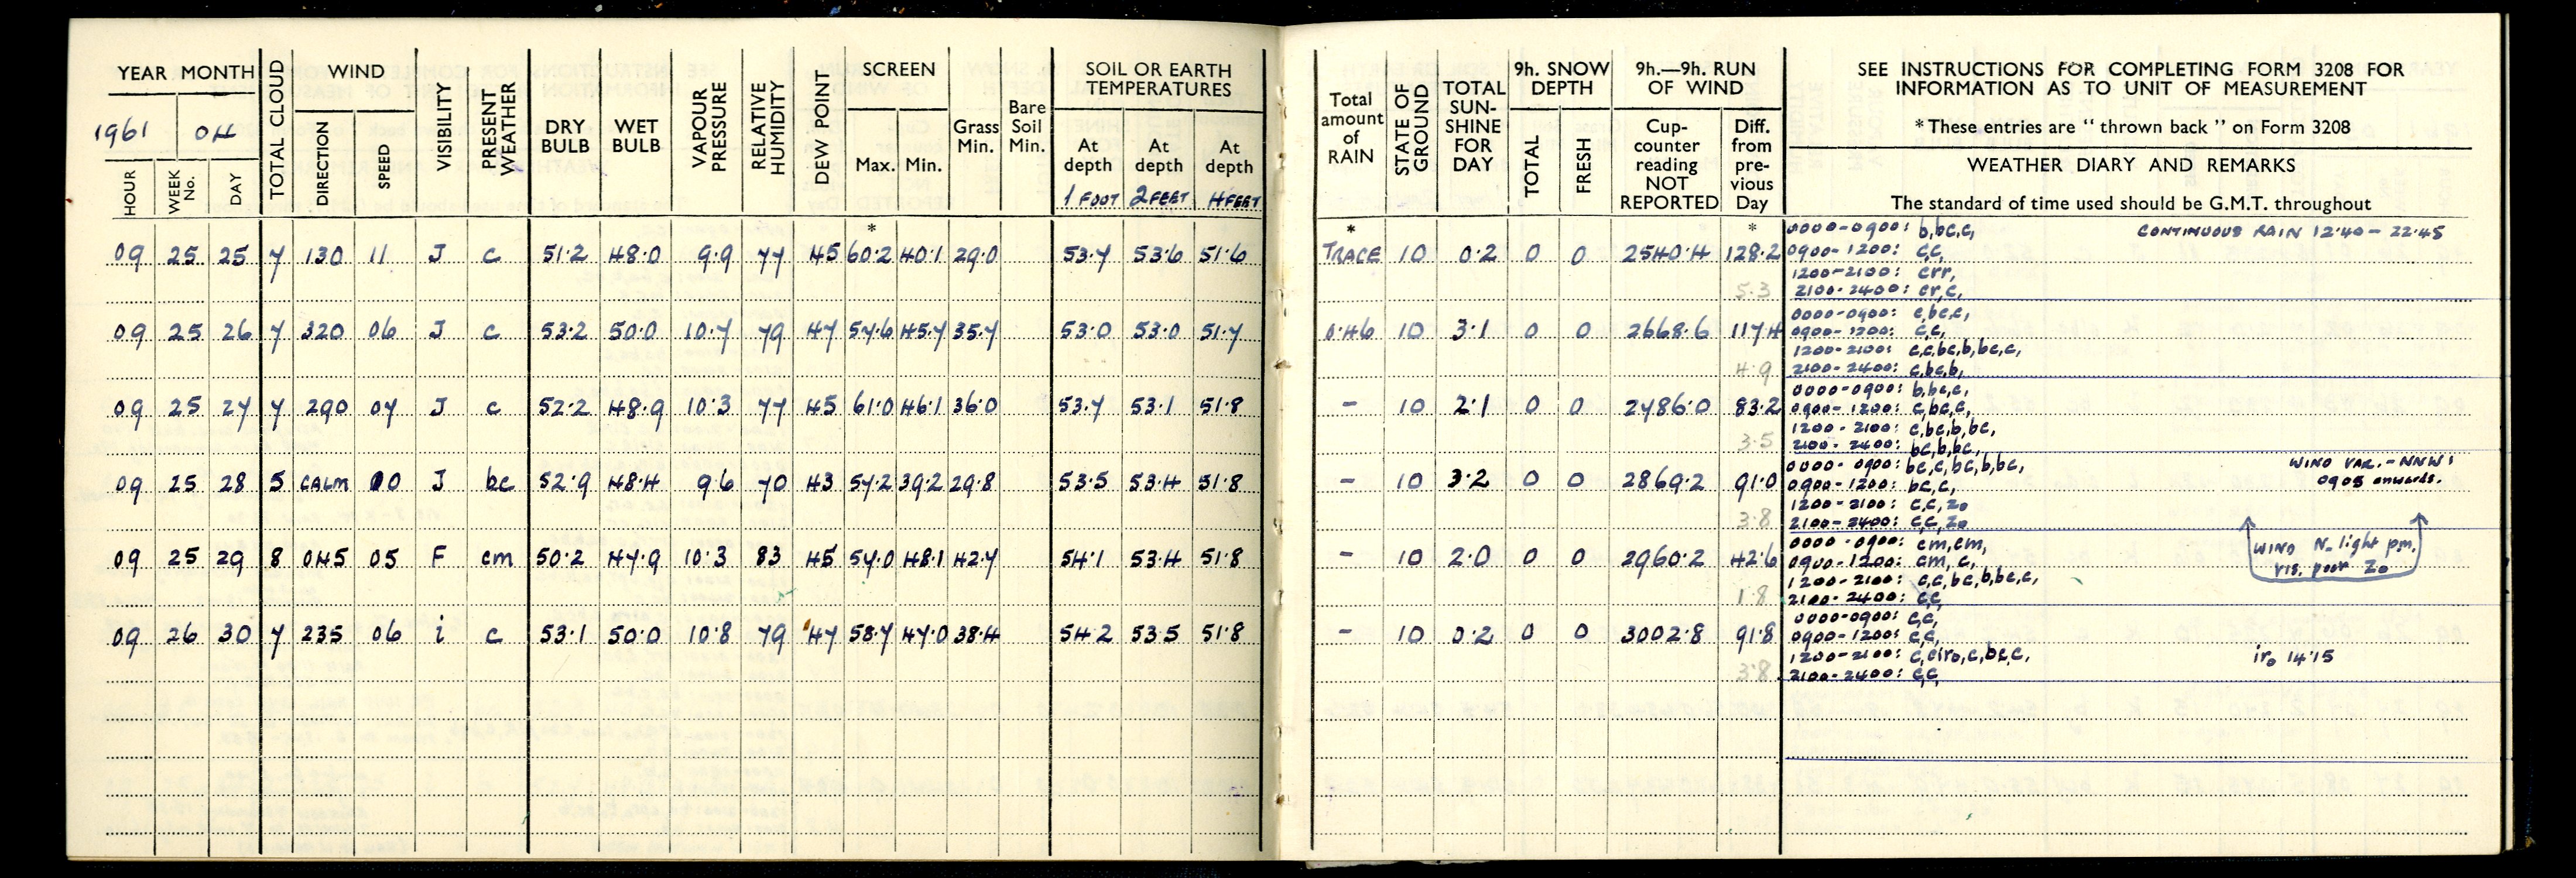 YEAR MONTH
1961 04
HOUR
WEEK No.
DAY
TOTAL CLOUD
WIND
DIRECTION
SPEED
VISIBILITY
PRESENT WEATHER
DRY BULB
WET BULB
VAPOUR PRESSURE
RELATIVE HUMIDITY
DEW POINT
SCREEN
Max. Min.
Grass Min.
Bare Soil Min.
SOIL OR EARTH TEMPERATURES
At depth At depth At depth
1 FOOT 2 FEET 4 FEET
Total amount of RAIN
STATE OF GROUND
TOTAL SUN-SHINE FOR DAY
9h. SNOW DEPTH
TOTAL
FRESH
9h.—9h. RUN OF WIND
Cup-counter reading NOT REPORTED
Diff. from pre-vious Day
SEE INSTRUCTIONS FOR COMPLETING FORM 3208 FOR
INFORMATION AS TO UNIT OF MEASUREMENT
* These entries are “ thrown back ” on Form 3208
WEATHER DIARY AND REMARKS
The standard of time used should be G.M.T. throughout
* * *
09 25 25 7 130 11 J c 51.2 48.0 9.9 77 45 60.2 40.1 29.0 53.7 53.6 51.6 TRACE 10 0.2 0 0 2540.4 128.2
5.3
0000-0900: b,bc,c, CONTINUOUS RAIN 12.40 - 22.45
0900-1200: c,c,
1200-2100: crr,
2100-2400: cr,c,
09 25 26 7 320 06 J c 53.2 50.0 10.7 79 47 57.6 45.7 35.7 53.0 53.0 51.7 0.46 10 3.1 0 0 2668.6 117.4
4.9
0000-0900: c,bc,c,
0900-1200: c,c,
1200-2100: c,c,bc,b,bc,c,
2100-2400: c,bc,b,
09 25 27 7 290 07 J c 52.2 48.9 10.3 77 45 61.0 46.1 36.0 53.7 53.1 51.8 - 10 2.1 0 0 2786.0 83.2
3.5
0000-0900: b,bc,c,
0900-1200: c,bc,c,
1200-2100: c,bc,b,bc,
2100-2400: bc,b,bc,
09 25 28 5 CALM 00 J bc 52.9 48.4 9.6 70 43 57.2 39.2 29.8 53.5 53.4 51.8 - 10 3.2 0 0 2869.2 91.0
3.8
0000-0900: bc,c,bc,b,bc, WIND VAR.-NNW:
0900-1200: bc,c, 0905 onwards.
1200-2100: c,c,zo
2100-2400: c,c,zo
09 25 29 8 045 05 F cm 50.2 47.9 10.3 83 45 57.0 48.1 42.7 54.1 53.4 51.8 - 10 2.0 0 0 2960.2 42.6
1.8
0000-0900: cm,cm, WIND N. light pm.
0900-1200: cm,c, vis. poor Zo
1200-2100: c,c,bc,b,bc,c,
2100-2400: c,c,
09 26 30 7 235 06 i c 53.1 50.0 10.8 79 47 58.7 47.0 38.4 54.2 53.5 51.8 - 10 0.2 0 0 3002.8 91.8
3.8
0000-0900: c,c,
0900-1200: c,c,
1200-2100: c,ciro,c,bc,c, iro 14.15
2100-2400: c,c,